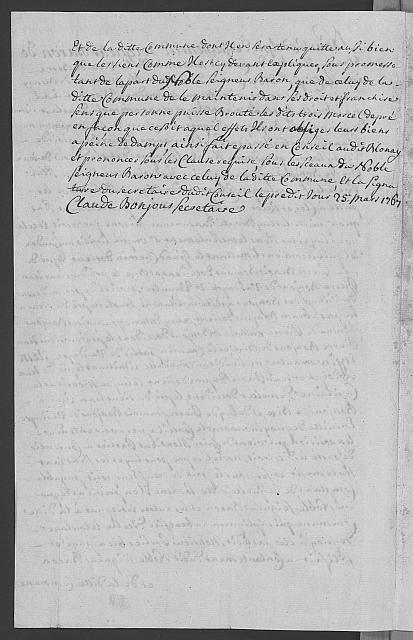 Et de la ditte Commune dont Il en sera tenu quitte aussi bien
que les siens Comme Il est cy devant expliquer, sous promesse
tant de la part du dt Noble Seigneur Baron, que de celuy de la
ditte Commune de le maintenir dans ses droit et franchise
sens que personne puisse Broute les dits trois Marcel de pré
en façon que ce soit aquel effets Ils ont obliges leurs biens
a peine de damps ainsi fait et passé en Conseil audit Blonay
et prononcés sous les Clause requise sous les Sceaux du Noble
Seigneur Baron avec celuy de la ditte Commune Et la signa
ture du secretaire dudit Conseil le predit Jour 25. Mars 1767
Claude Bonjour Secretaire